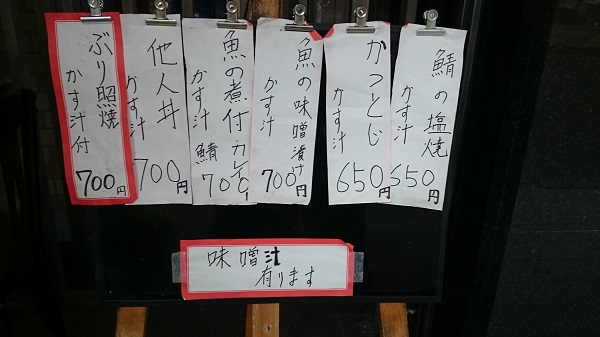 鯖の塩焼
かす汁
550円
かつとじ
かす汁
650円
魚の味噌漬け
かす汁
700円
魚の煮付・カレイ
かす汁 鯖
700
他人丼
かす汁
700円
ぶり照焼
かす汁付
700円
味噌汁
有ります